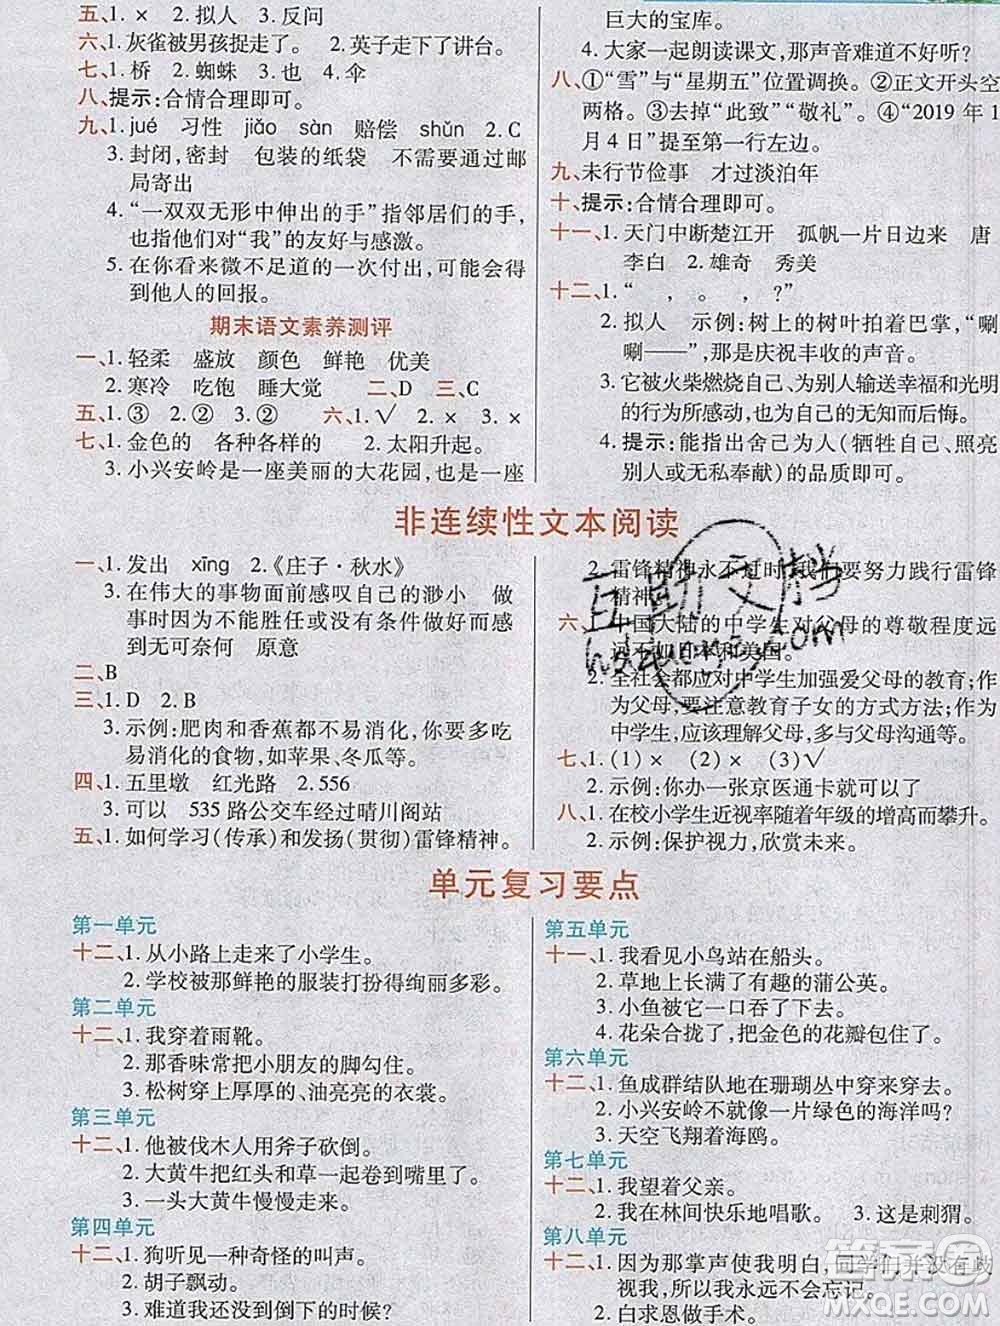 五、1. × 2. 拟人 3. 反问
六、1. 灰雀被男孩捉走了。 2. 英子走下了讲台。
七、1. 桥 2. 蜘蛛 3. 也 4. 伞
八、提示:合情合理即可。
九、1. jué 习性 jiǎo sàn 赔偿 shǔn 2. C
3. 封闭,密封 包装的纸袋 不需要通过邮
局寄出
4. “一双双无形中伸出的手”指邻居们的手,
也指他们对“我”的友好与感激。
5. 在你看来微不足道的一次付出,可能会得
到他人的回报。
期末语文素养测评
一、1. 轻柔 盛放 颜色 鲜艳 优美
2. 寒冷 吃饱 睡大觉 二、D 三、C
五、1. ③ 2. ② 3. ② 六、1. √ 2. × 3. ×
七、1. 金色的 各种各样的 2. 太阳升起。
3. 小兴安岭是一座美丽的大花园,也是一座
巨大的宝库。
4. 大家一起朗读课文,那声音难道不好听?
八、①“雪”与“星期五”位置调换。②正文开头空
两格。③去掉“此致”“敬礼”。④“2019 年 1
月 4 日”提至第一行左边。
九、未行节俭事 才过淡泊年
十、提示:合情合理即可。
十一、1. 天门中断楚江开 孤帆一片日边来 唐
李白 2. 雄奇 秀美
十二、1. “ , 。 , ?”
2. 拟人 示例:树上的树叶拍着巴掌,“唰
唰——”,那是庆祝丰收的声音。
3. 它被火柴燃烧自己、为别人输送幸福和光明
的行为所感动,也为自己的无知而后悔。
4. 提示:能指出舍己为人(牺牲自己、照亮
别人或无私奉献)的品质即可。
非连续性文本阅读
一、1. 发出 xīng 2.《庄子·秋水》
3. 在伟大的事物面前感叹自己的渺小 做
事时因为不能胜任或没有条件做好而感
到无可奈何 原意
二、B
三、1. D 2. B
3. 示例:肥肉和香蕉都不易消化,你多吃
易消化的食物,如苹果、冬瓜等。
四、1. 五里墩 红光路 2. 556
3. 可以 535 路公交车经过晴川阁站
五、1. 如何学习(传承)和发扬(贯彻)雷锋精神。
2. 雷锋精神永不过时,我们要努力践行雷锋
精神。
六、1. 中国大陆的中学生对父母的尊敬程度远
远不如日本和美国。
2. 全社会都应对中学生加强爱父母的教育;作
为父母,要注意教育子女的方式方法;作为
中学生,应该理解父母,多与父母沟通等。
七、1. (1) × (2) × (3) √
2. 示例:你办一张京医通卡就可以了。
八、1. 在校小学生近视率随着年级的增高而攀升。
2. 示例:保护视力,欣赏未来。
互勤文档
hdzuoye.com
单元复习要点
第一单元
十二、1. 从小路上走来了小学生。
2. 学校被那鲜艳的服装打扮得绚丽多彩。
第二单元
十二、1. 我穿着雨靴。
2. 那香味常把小朋友的脚勾住。
3. 松树穿上厚厚的、油亮亮的衣裳。
第三单元
十二、1. 他被伐木人用斧子砍倒。
2. 大黄牛把红头和草一起卷到嘴里。
3. 一头大黄牛慢慢走来。
第四单元
十二、1. 狗听见一种奇怪的叫声。
2. 胡子飘动。
3. 难道我还没到倒下的时候?
第五单元
十一、1. 我看见小鸟站在船头。
2. 草地上长满了有趣的蒲公英。
3. 小鱼被它一口吞了下去。
4. 花朵合拢了,把金色的花瓣包住了。
第六单元
十二、1. 鱼成群结队地在珊瑚丛中穿来穿去。
2. 小兴安岭难道不像一片绿色的海洋吗?
3. 天空飞翔着海鸥。
第七单元
十二、1. 我望着父亲。
2. 我在林间快乐地唱歌。 3. 这是刺猬。
第八单元
十二、1. 因为那掌声使我明白,同学们并没有歧
视我,所以我永远不会忘记。
2. 白求恩做手术。
答案圈
MXQE.COM